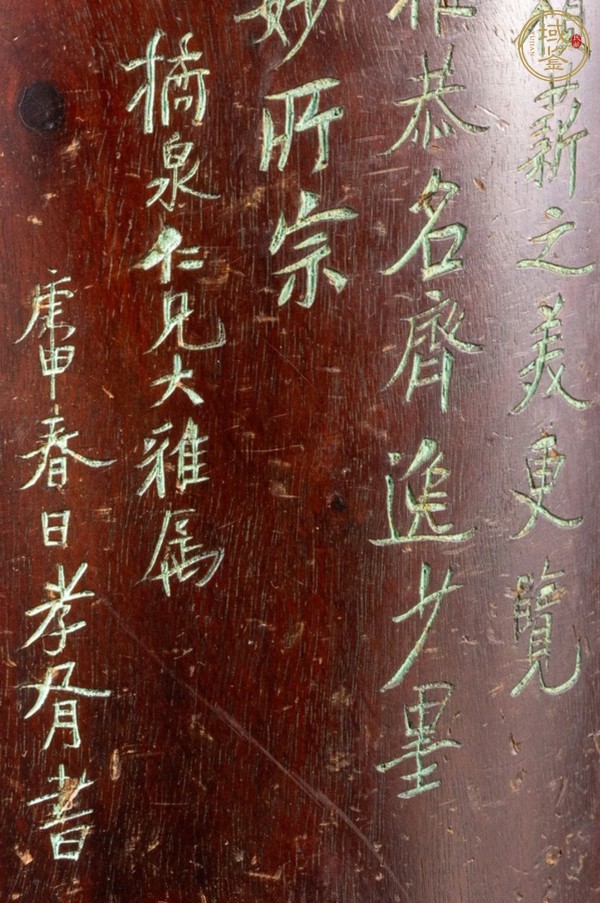 蕲之美更覽
恭名齊逸少墨
妙所宗
橘泉仁兄大雅属
庚申春日孝胥書
域鉴